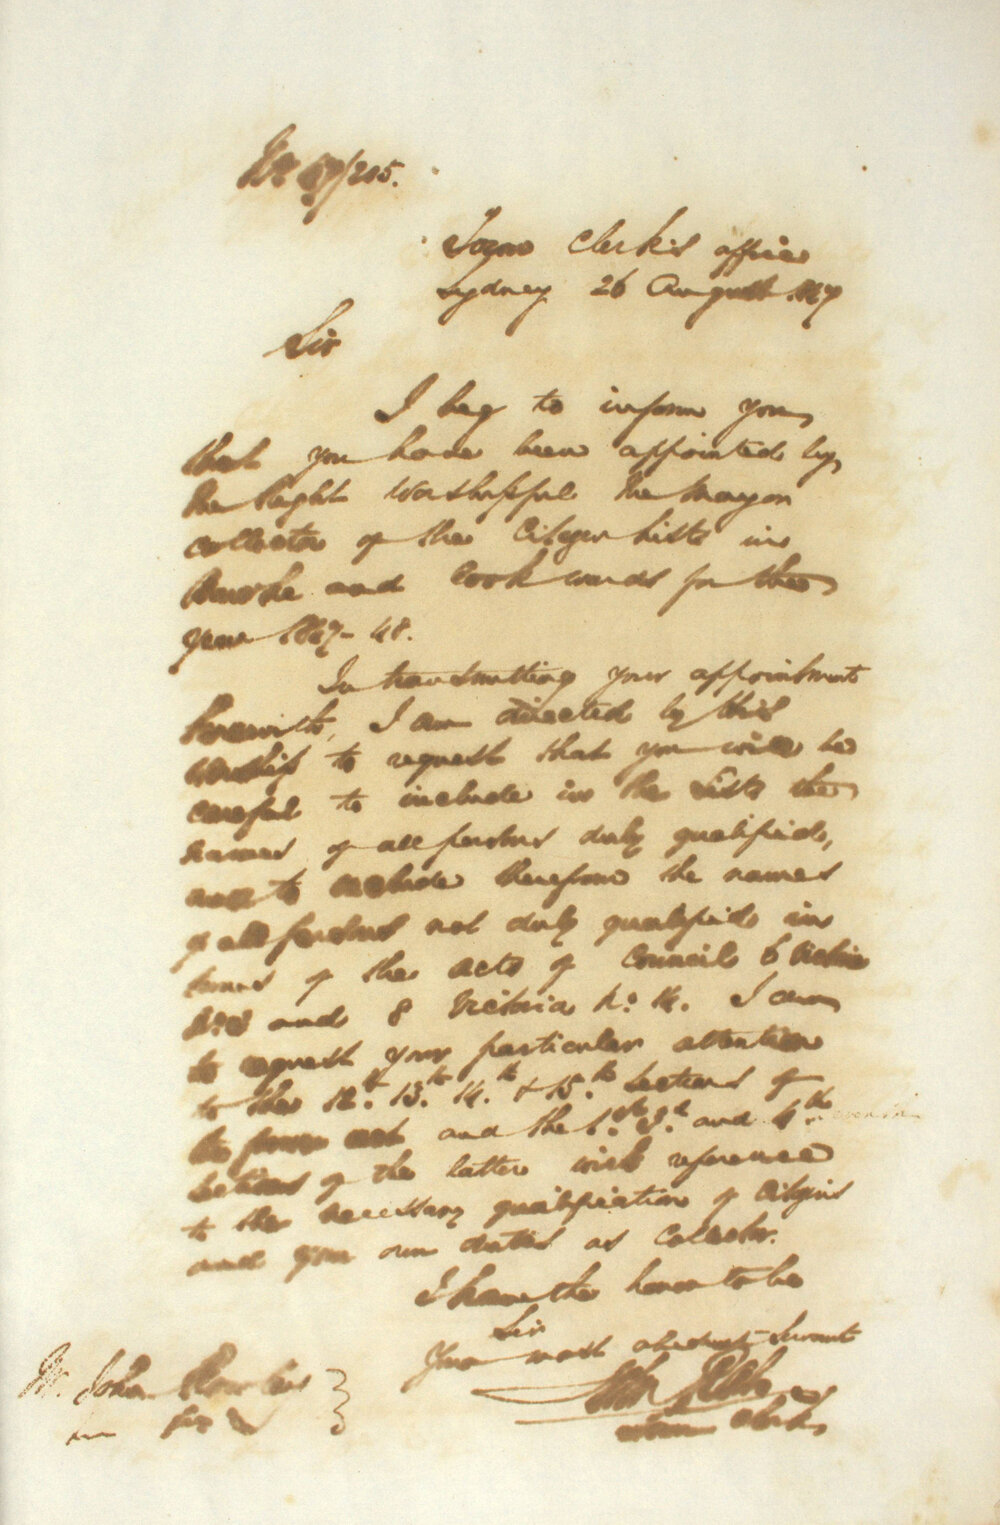 No 47/205.
Town Clerk's office
Sydney 26 August 1847
Sir
I beg to inform you
that you have been appointed by
the Right Worshipful the Mayor
collector of the Citizen lists in
Bourke and Cook wards for the
year 1847-48.
In transmitting your appointment
herewith, I am directed by His
Worship to request that you will be
careful to include in the Lists the
names of all persons duly qualified,
and to exclude therefrom the names
of all persons not duly qualified in
terms of the Acts of Council 6 Victoria
No 3 and 8 Victoria No. 14. I am
to request your particular attention
to the 12th. 13th. 14th. & 15th. Sections of
the former act and the 1st. 3d. and 4th
Sections of the latter with reference
to the necessary qualification of Citizens
and your own duties as Collector.
I have the honor to be
Sir
Your most obedient Servant
Town Clerk
Mr. John